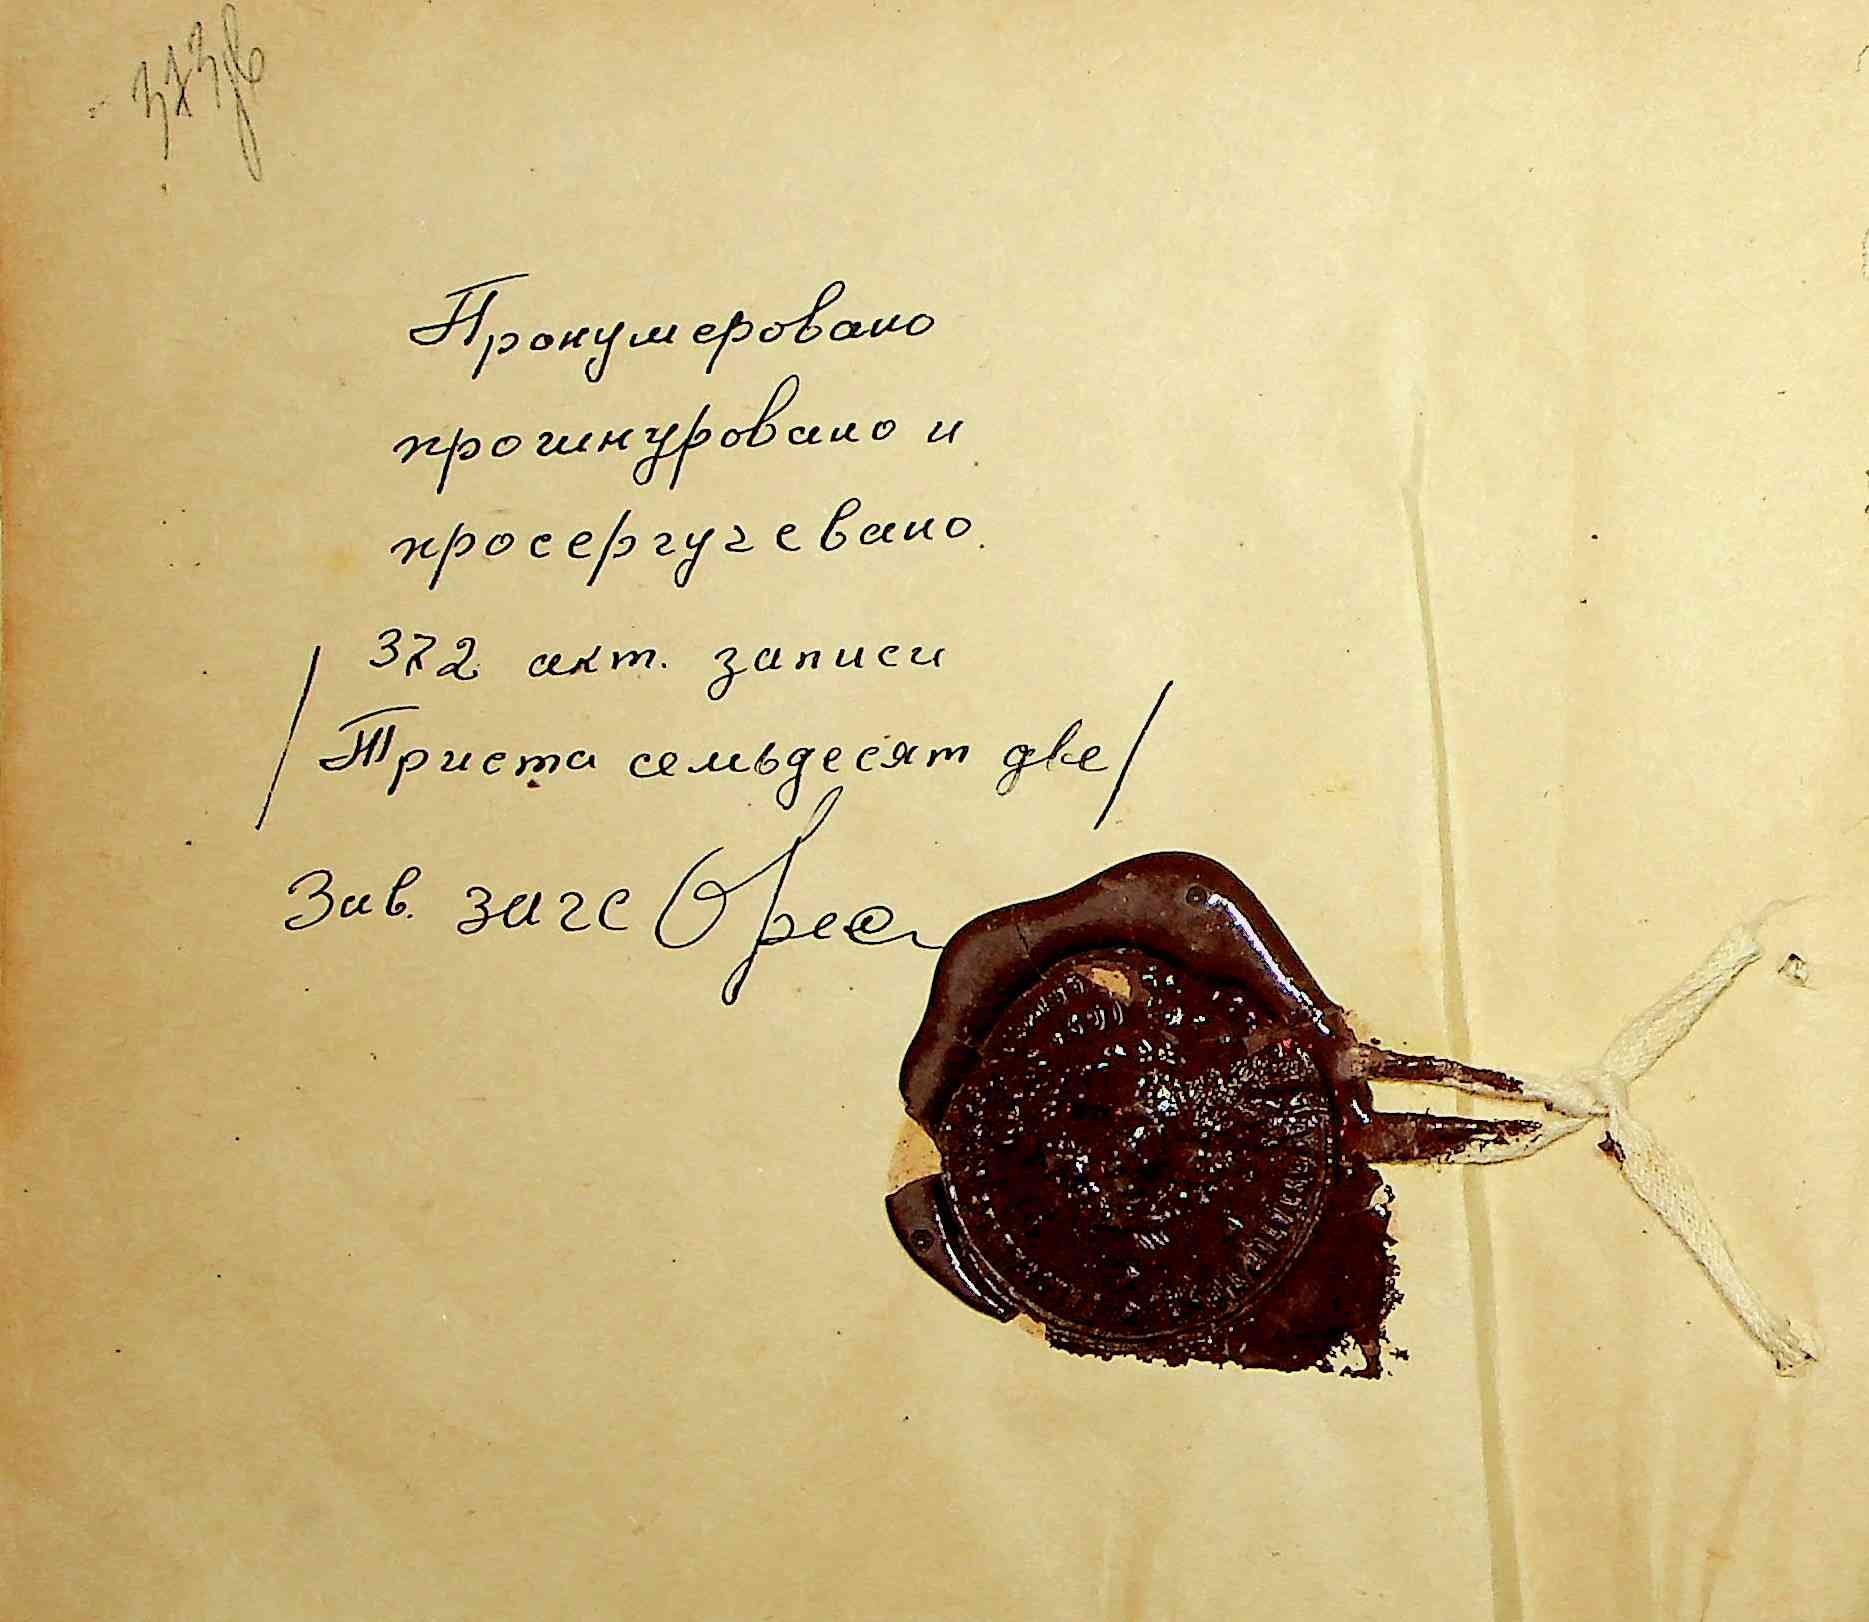 Пронумеровано
прошнуровано и
просергучевано.
372 акт. записи
/Триста семьдесят две/
Зав. загс